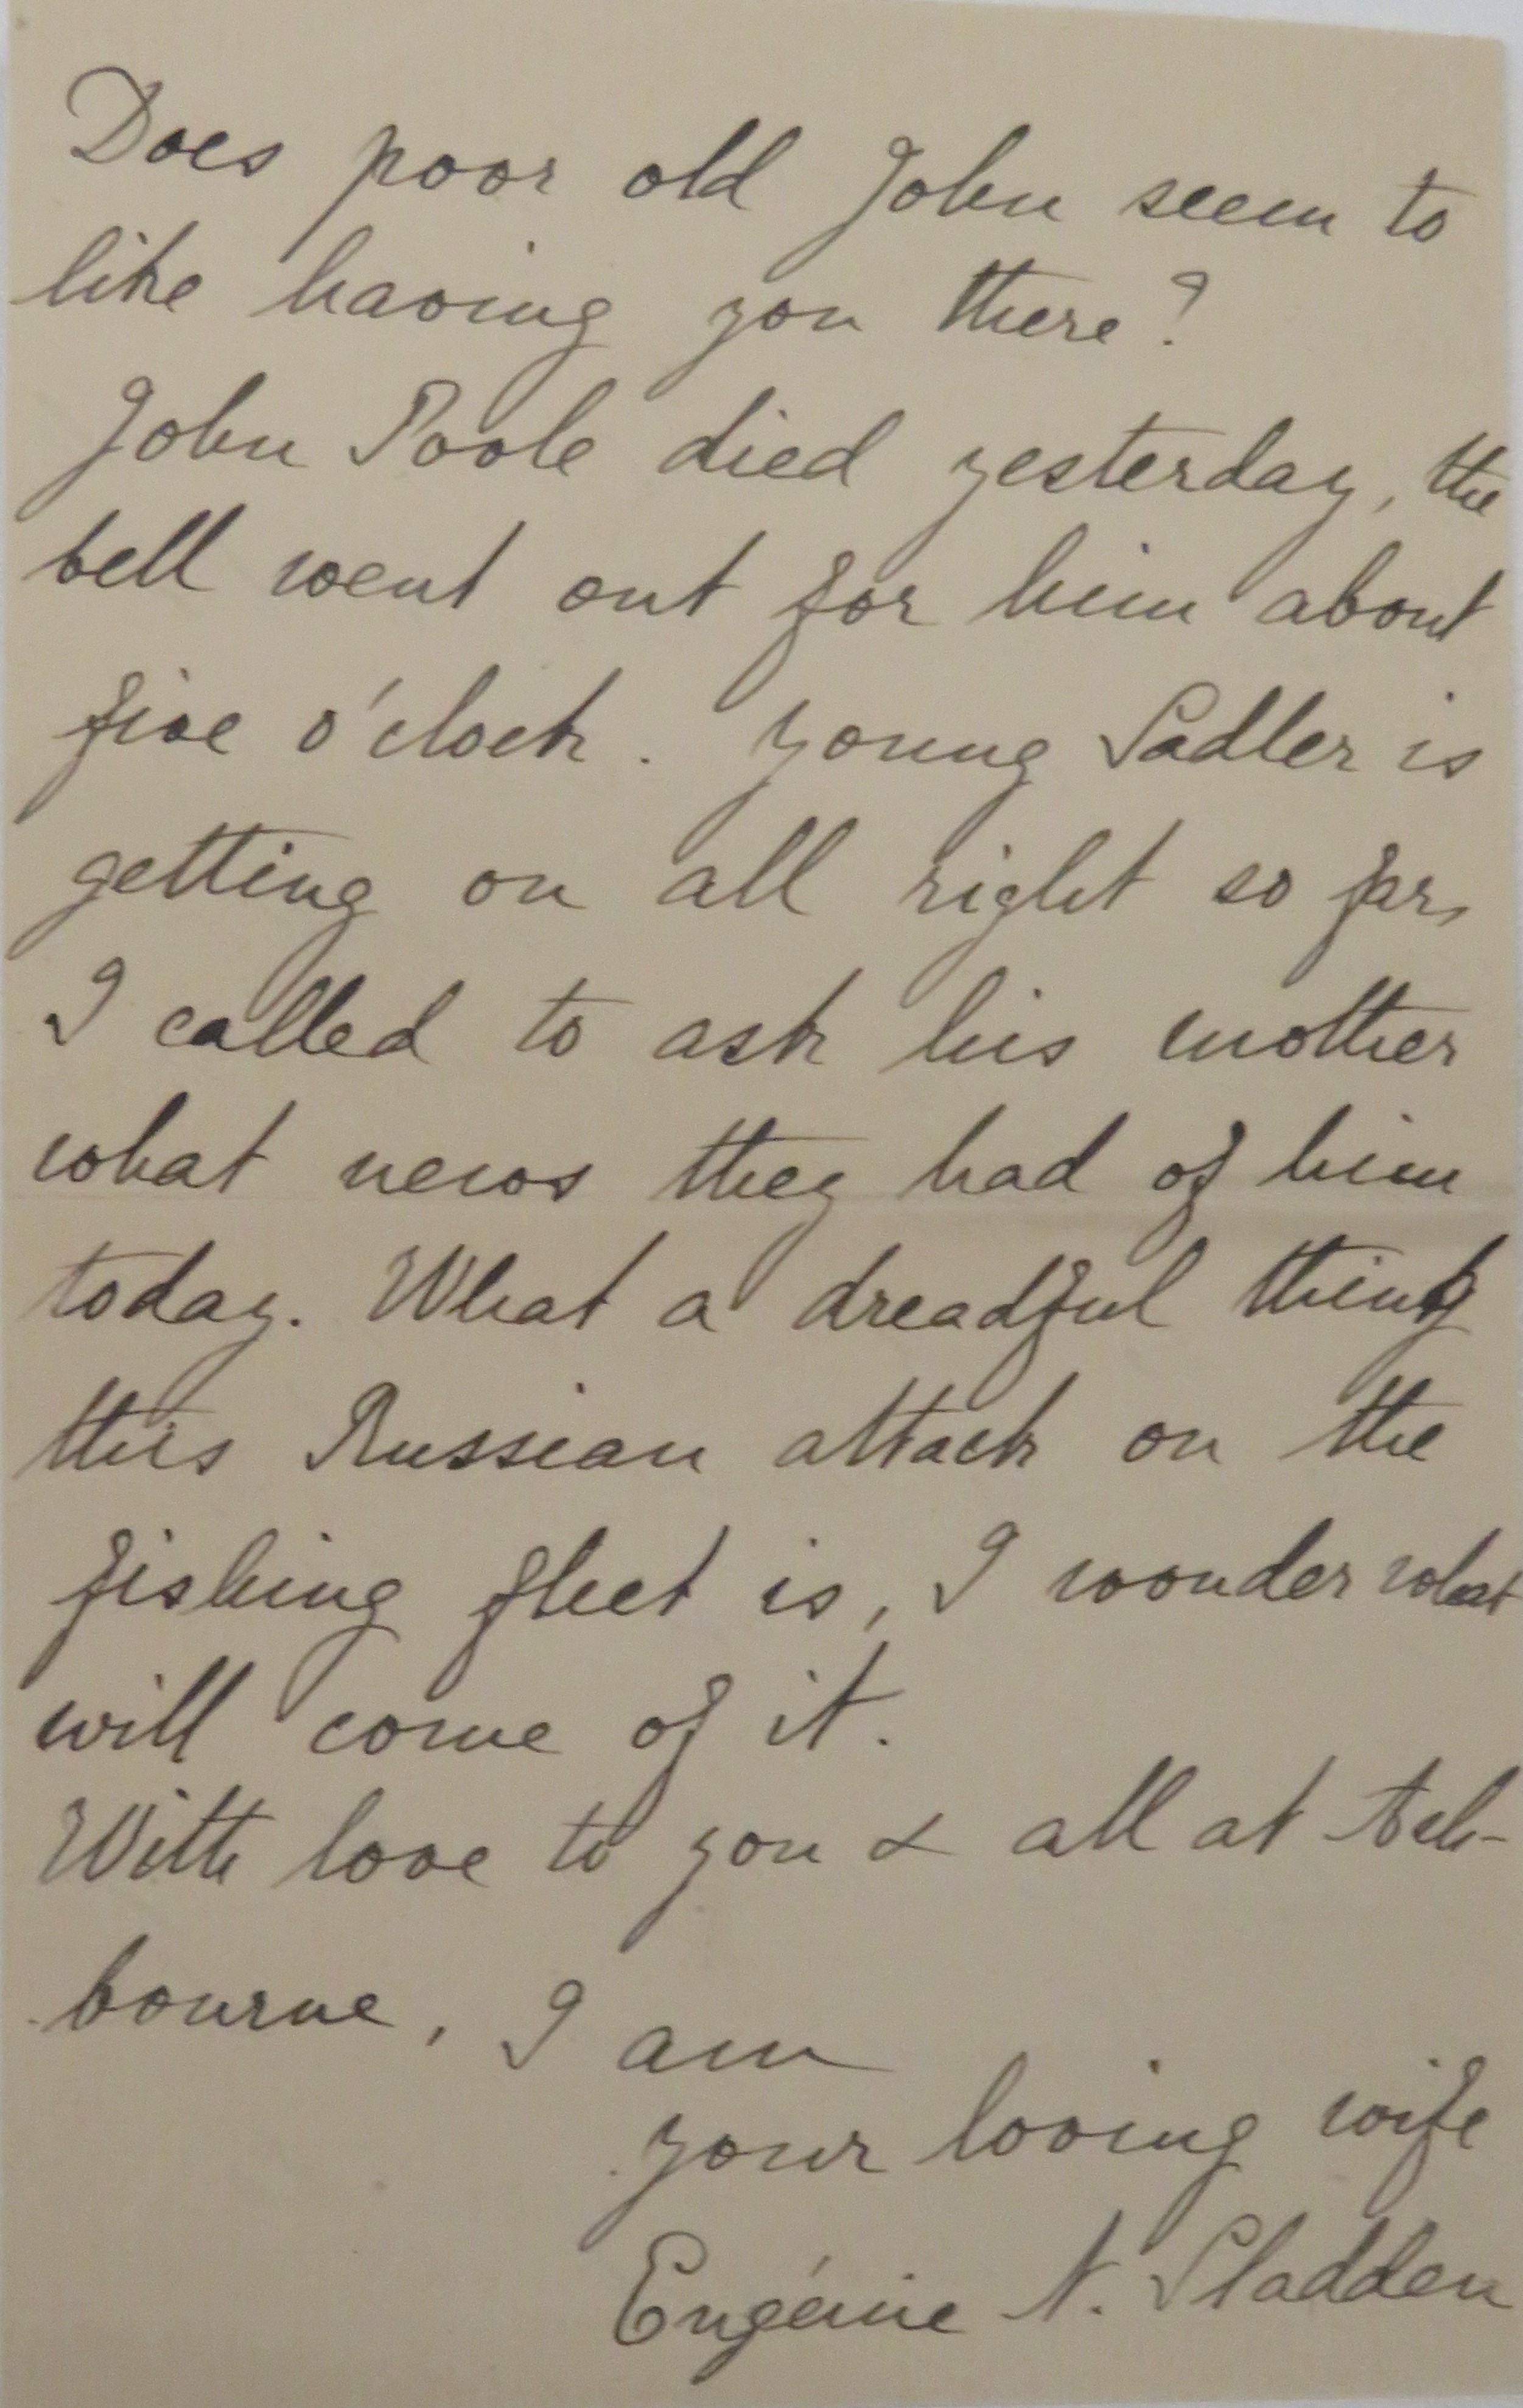 Does poor old John seem to
like having you there?
John Poole died yesterday, the
bell went out for him about
five o'clock. Young Sadler is
getting on all right so far,
I called to ask his mother
what news they had of him
today. What a dreadful thing
this Russian attack on the
fishing fleet is, I wonder what
will come of it.
With love to you & all at Ash-
bourne, I am
your loving wife
Eugénie N. Sladden